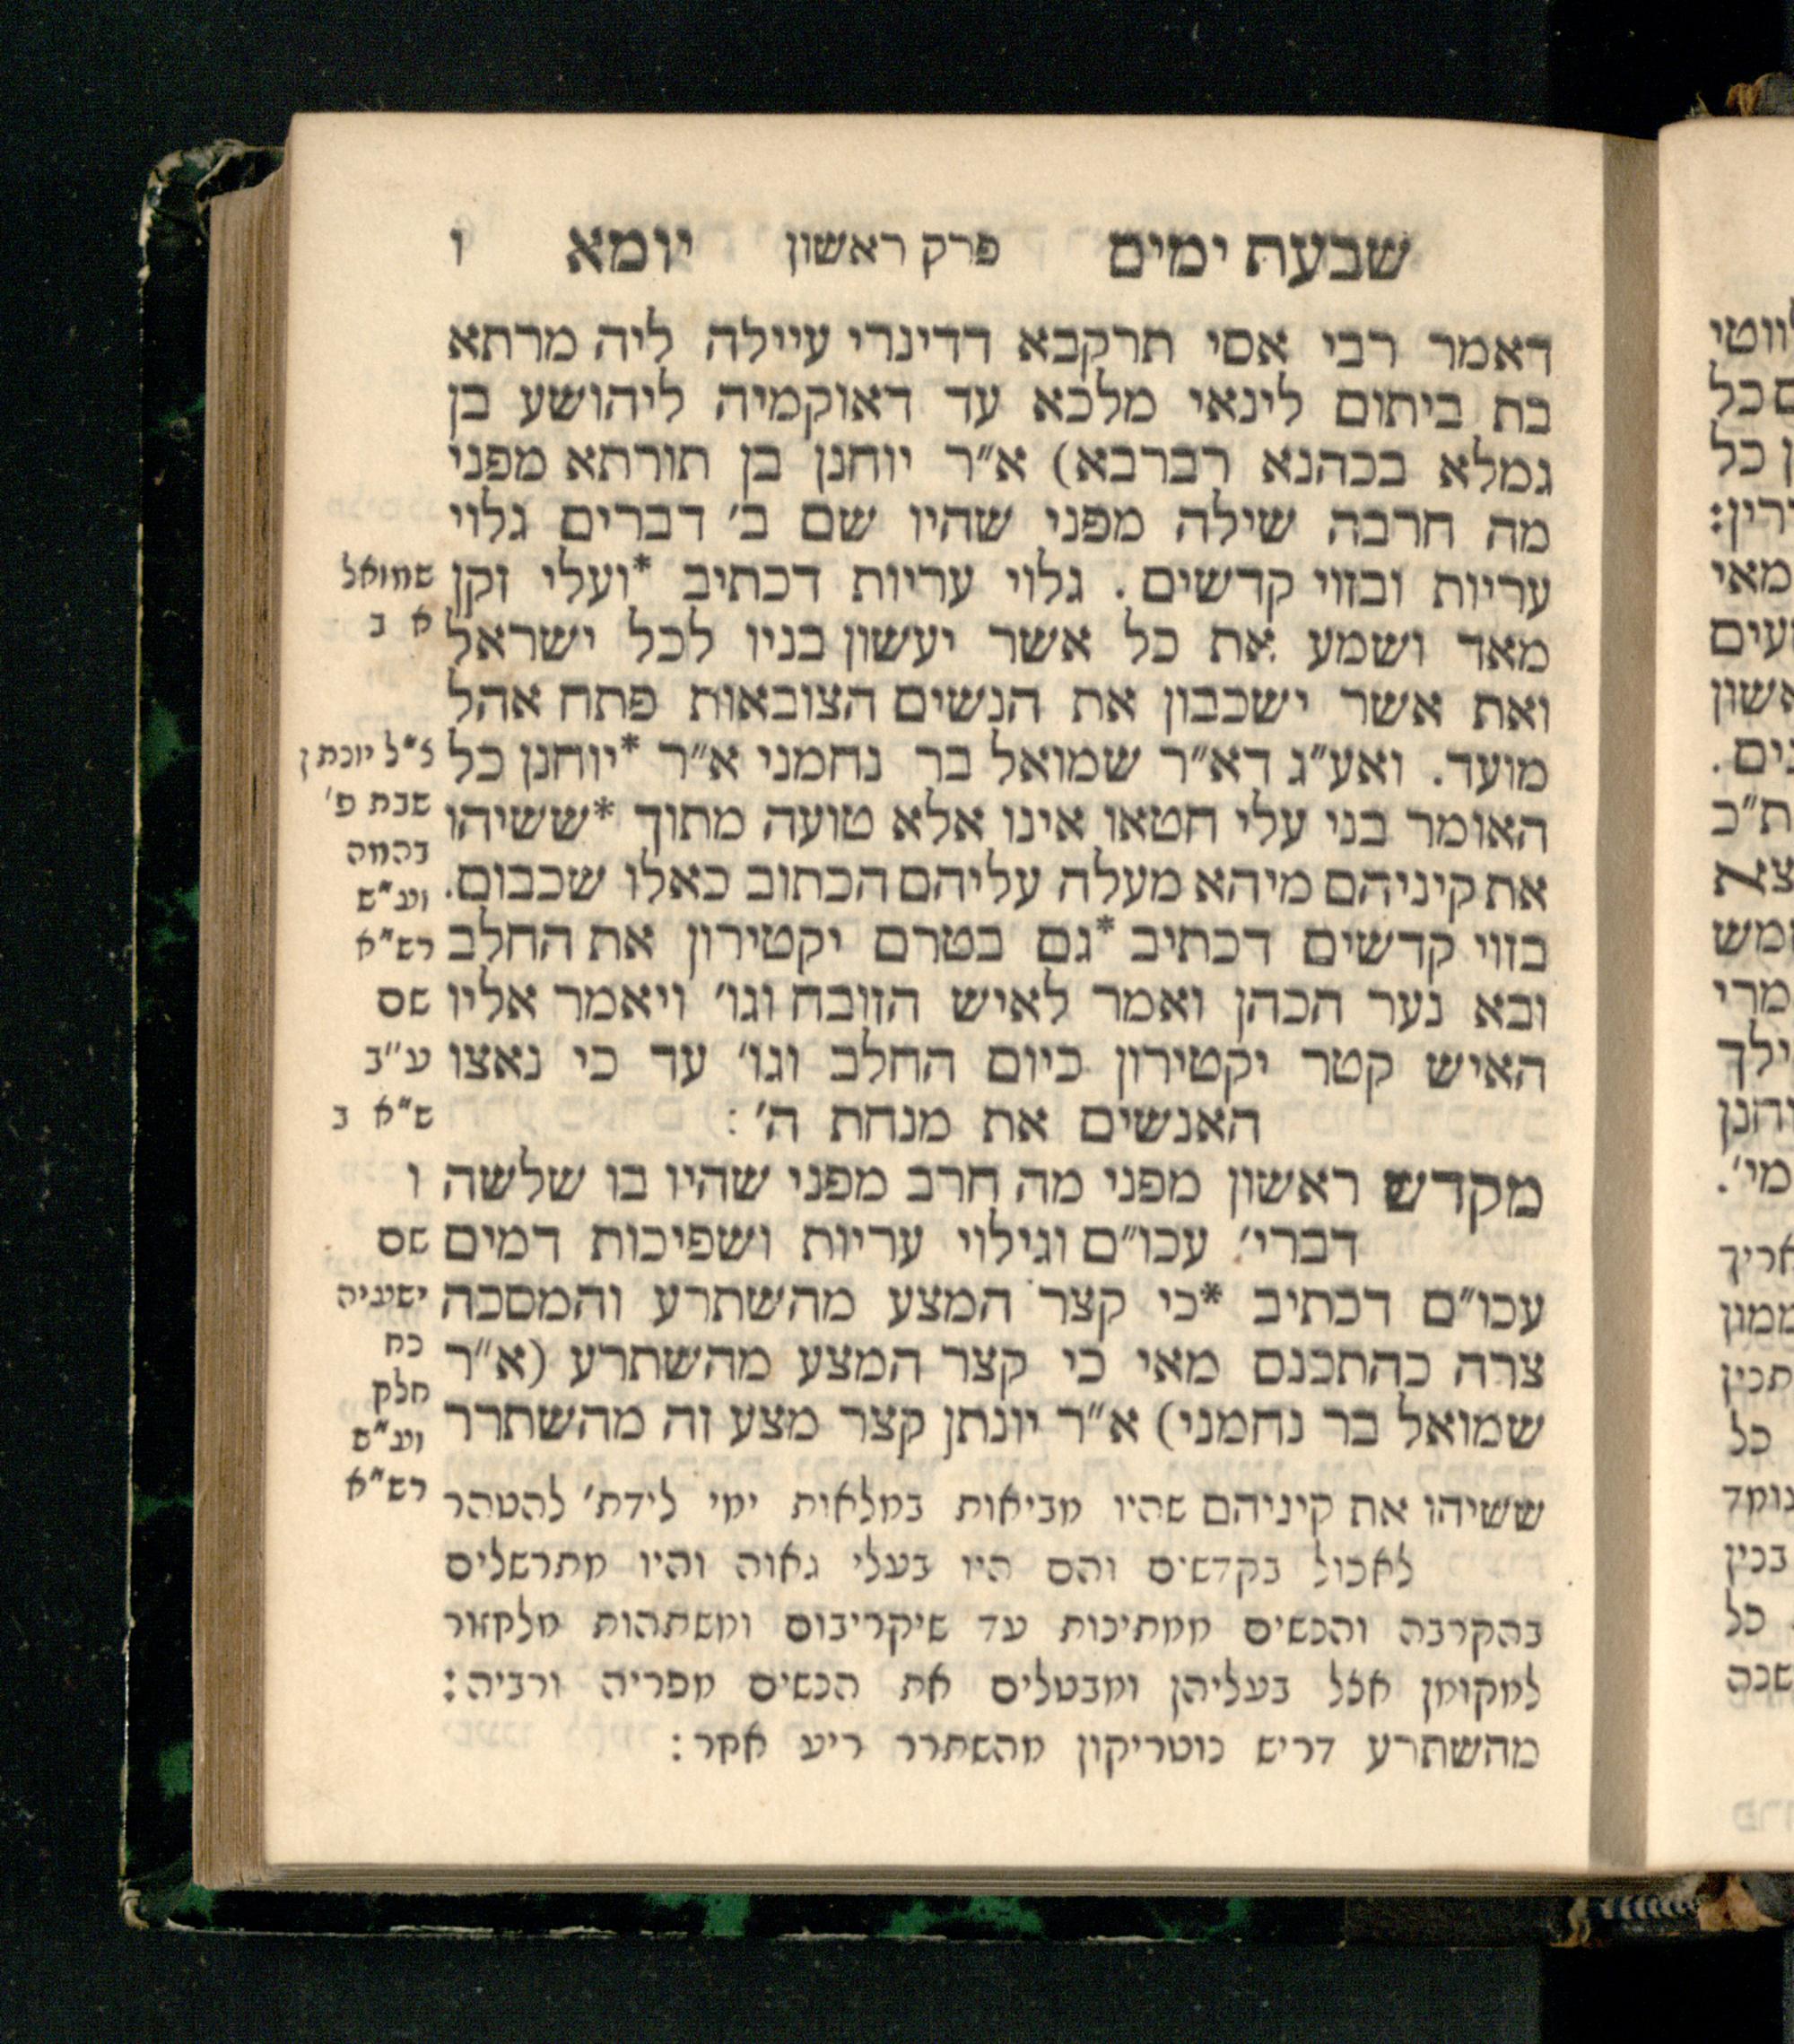 שבעת ימים פרק ראשון יומא ו
דאמר רבי אסי תרקבא דדינרי עיילה ליה מרתא
בת ביתום לינאי מלכא עד דאוקמיה ליהושע בן
גמלא בכהנא רברבא) א״ר יוחנן בן תורתא מפני
מה חרבה שילה מפני שהיו שם ב׳ דברים גלוי
עריות ובזוי קדשים. גלוי עריות דכתיב *ועלי זקן
מאד ושמע את כל אשר יעשון בניו לכל ישראל
ואת אשר ישכבון את הנשים הצובאות פתח אהל
מועד. ואע״ג דא״ר שמואל בר נחמני א״ר *יוחנן כל
האומר בני עלי חטאו אינו אלא טועה מתוך *ששיהו
את קיניהם מיהא מעלה עליהם הכתוב כאלו שכבום.
בזוי קדשים דכתיב *גם בטרם יקטירון את החלב
ובא נער הכהן ואמר לאיש הזובח וגו׳ ויאמר אליו
האיש קטר יקטירון כיום החלב וגו׳ עד כי נאצו
האנשים את מנחת ה׳:
מקדש ראשון מפני מה חרב מפני שהיו בו שלשה
דברי׳ עכו״ם וגילוי עריות ושפיכות דמים
עכו״ם דכתיב *כי קצר המצע מהשתרע והמסכה
צרה כהתכנס מאי כי קצר המצע מהשתרע (א״ר
שמואל בר נחמני) א״ר יונתן קצר מצע זה מהשתרר
ששיהו את קיניהם שהיו מביאות במלאות ימי לידת׳ להטהר
לאכול בקדשים והם היו בעלי גאוה והיו מתרשלים
בהקרבה והנשים ממתינות עד שיקריבום ומשתהות מלחזור
למקומן אצל בעליהן ומבטלים את הנשים מפריה ורביה:
מהשתרע דריש נוטריקון מהשתרר ריע אחר:
שמואל
א ב
ל״ל יונתן
שבת פ׳
בהמה
וע״ש
רש״א
שם
ע״ב
ש״א ב
ו
שם
ישעיה
כח
חלק
וע״ש
רש״א
ם כל
ן כל
מאי
עים
אשון
ת״כ
מש
מרי
ילך
מי׳.
כל
בנין
כל